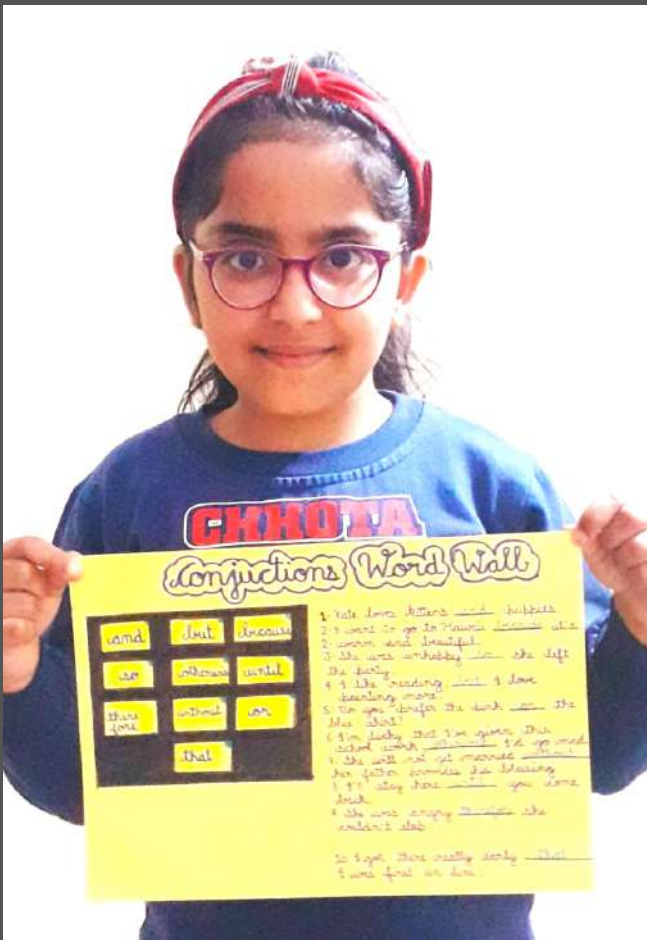 CHHOTA
Conjuctions Word Wall
and but because
so otherwise until
there fore without or
that
1. Kate loves kittens and puppies
2. I want to go to Hawaii because it's
2. warm and beautiful
3. She was unhappy so she left
the party
4. I like reading but I love
painting more
5. Do you prefer the dark or the
blue shirt?
6. I'm lucky that I've given this
school work otherwise I'd go mad
7. She will not get married without
her father promises his blessing
8. I'll stay here until you come
back
9. She was angry therefore she
couldn't stop
10 I got there really early that
I was first in line.